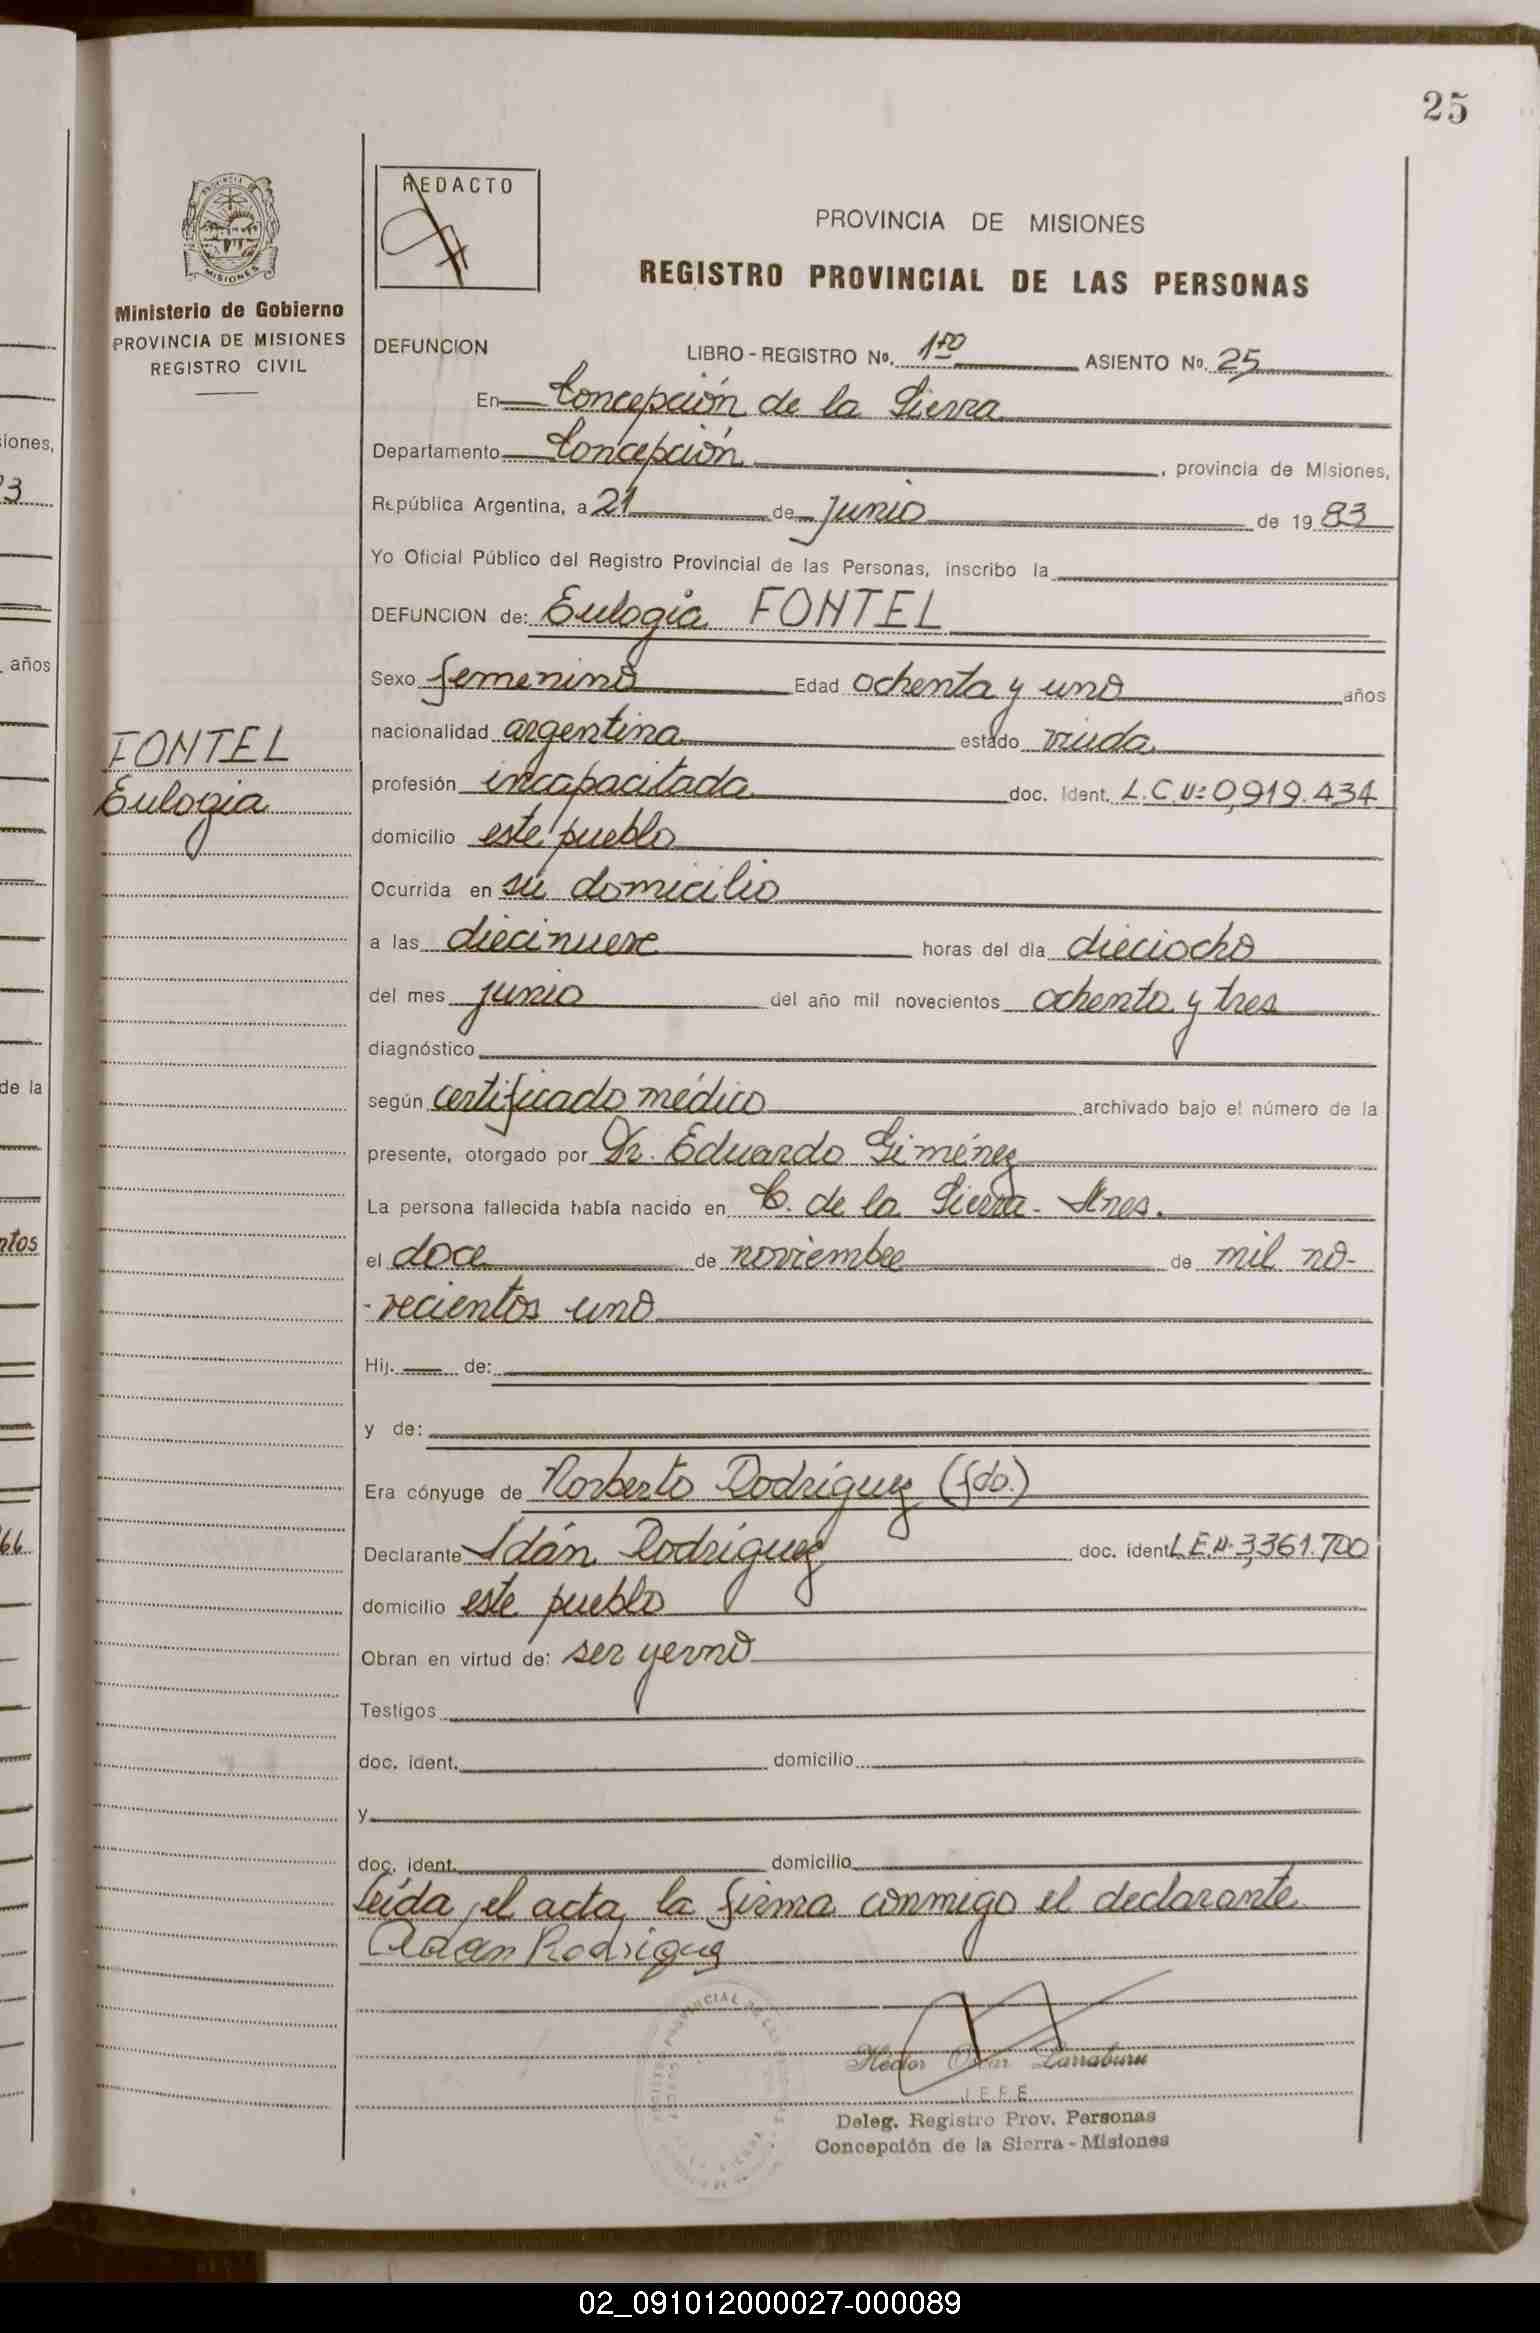 25
REDACTO
PROVINCIA DE MISIONES
REGISTRO PROVINCIAL DE LAS PERSONAS
MISIONES
Ministerio de Gobierno
PROVINCIA DE MISIONES
REGISTRO CIVIL
DEFUNCION LIBRO - REGISTRO Nº. 1ro ASIENTO Nº. 25
En Concepción de la Sierra
Departamento Concepción, provincia de Misiones,
República Argentina, a 21 de junio de 1983
Yo Oficial Público del Registro Provincial de las Personas, inscribo la
DEFUNCION de: Eulogia FONTEL
Sexo femenino Edad ochenta y uno años
FONTEL
Eulogia
nacionalidad argentina estado viuda
profesión incapacitada doc. Ident. L.C.Nº 0,919.434
domicilio este pueblo
Ocurrida en su domicilio
a las diecinueve horas del día dieciocho
del mes junio del año mil novecientos ochenta y tres
diagnóstico
según certificado médico archivado bajo el número de la
presente, otorgado por Dr. Eduardo Giménez
La persona fallecida había nacido en C. de la Sierra - Mnes.
el doce de noviembre de mil no-
-vecientos uno
Hij. de:
y de:
Era cónyuge de Norberto Rodríguez (fdo.)
Declarante Adán Rodríguez doc. ident L.E.Nº 3,361.700
domicilio este pueblo
Obran en virtud de: ser yerno
Testigos
doc. ident. domicilio
y
doc. ident. domicilio
Leída el acta, la firma conmigo el declarante
Adan Rodriguez
Hector Oscar Larraburu
JEFE
Deleg. Registro Prov. Personas
Concepción de la Sierra - Misiones
iones,
3
años
de la
ntos
66
02_091012000027-000089